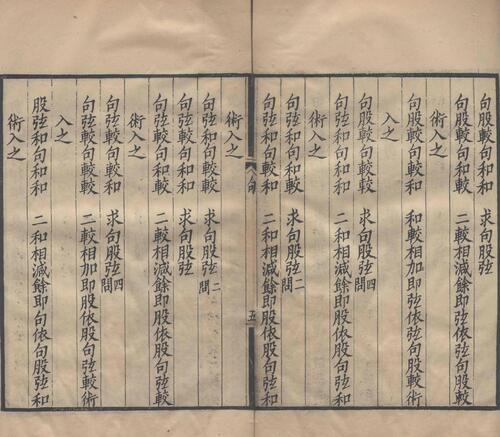 句股較句和和　求句股弦
句股較句較和　二較相減餘即弦依弦句股較
術入之
句股較句和和　和較相加即弦依弦句股較術
入之
句股較句較較　求句股弦四問
句弦和句和和　二和相減餘即股依股句弦和
術入之
句弦和句和較　求句股弦二問
句弦和句和較　二和相減餘即股依股句弦和
五
術入之
句弦和句較較　求句股弦二問
句弦較句和和　求句股弦
句弦較句較和　二較相減餘即股依股句弦較
術入之
句弦較句較和　求句股弦四問
句弦較句較較　二較相加即股依股句弦較術
入之
股弦和句和和　二和相減餘即句依句股弦和
術入之